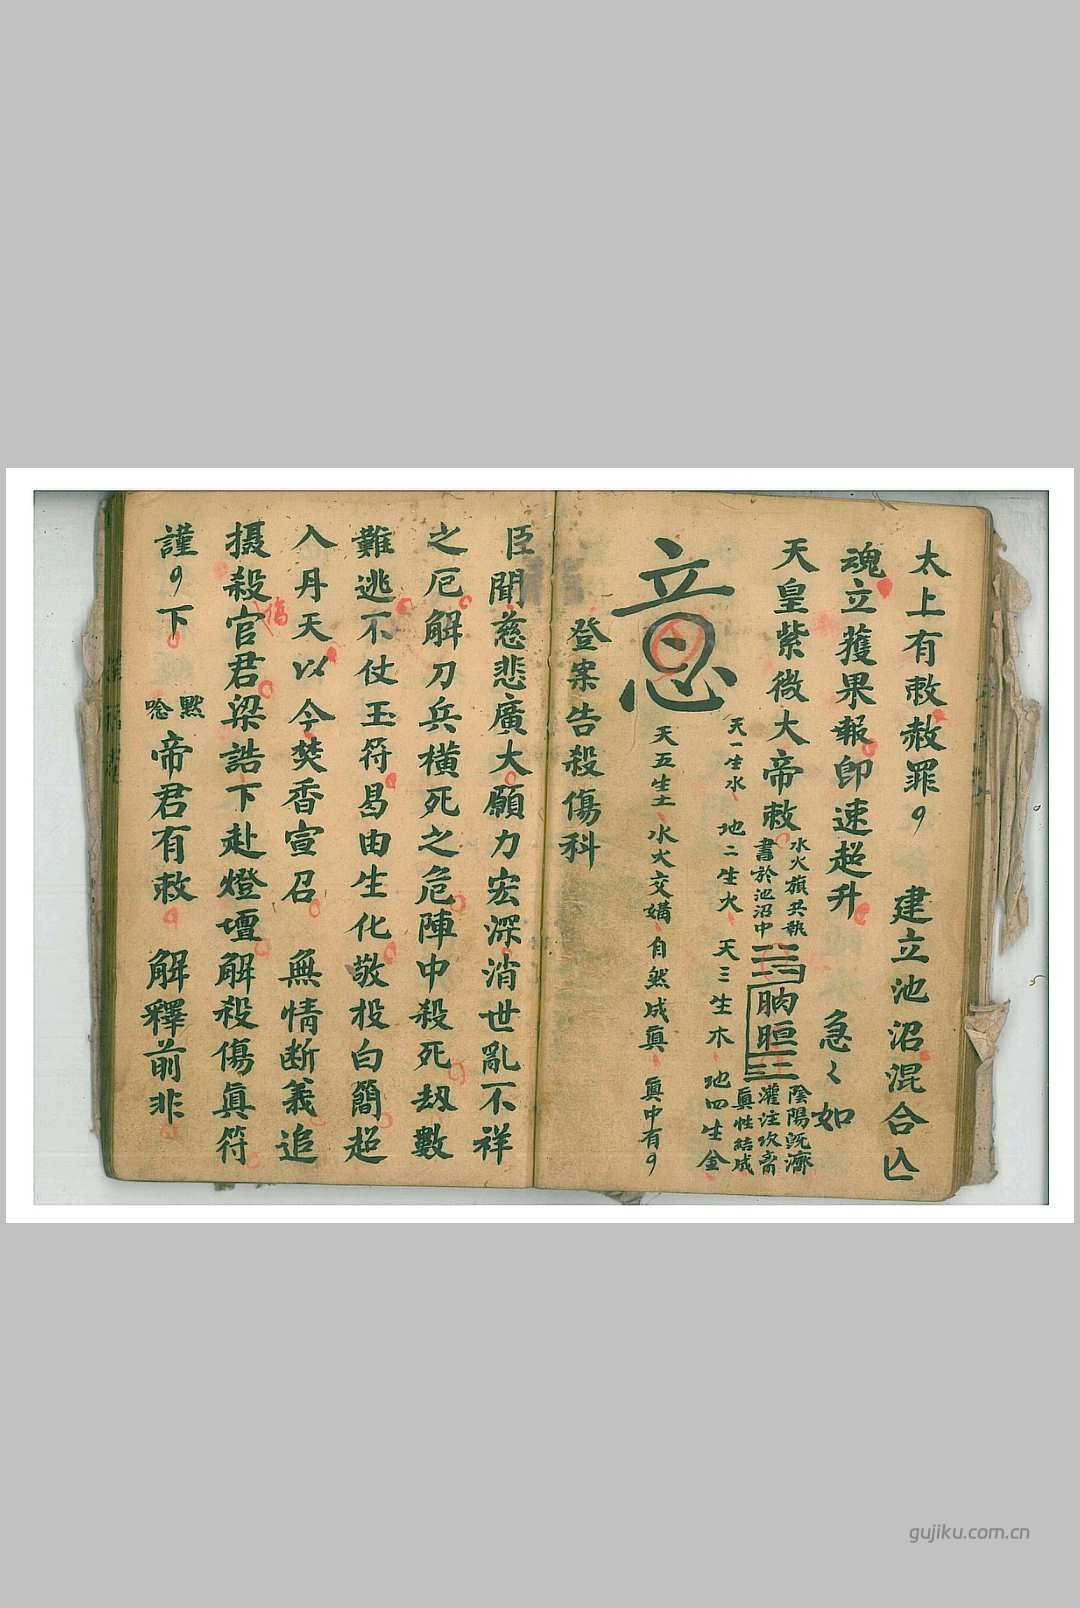 太上有敕赦罪〃　建立池沼混合亾
魂立獲果報即速超升　急〻如
天皇紫微大帝敕
水火旗共執
書於池沼中
陰陽既濟
灌注坎離
真性結成
天一生水　地二生火　天三生木　地四生金
天五生土　水火交媾　自然成真　真中有〃
登案告殺傷科
臣聞慈悲廣大願力宏深消世亂不祥
之厄解刀兵橫死之危陣中殺死劫數
難逃不仗玉符曷由生化敬投白簡超
入丹天以今焚香宣召　無情断義追
摄殺官君梁誥下赴燈壇解殺傷真符
傷
謹〃下　默唸　帝君有敕　解釋前非
gujiku.com.cn